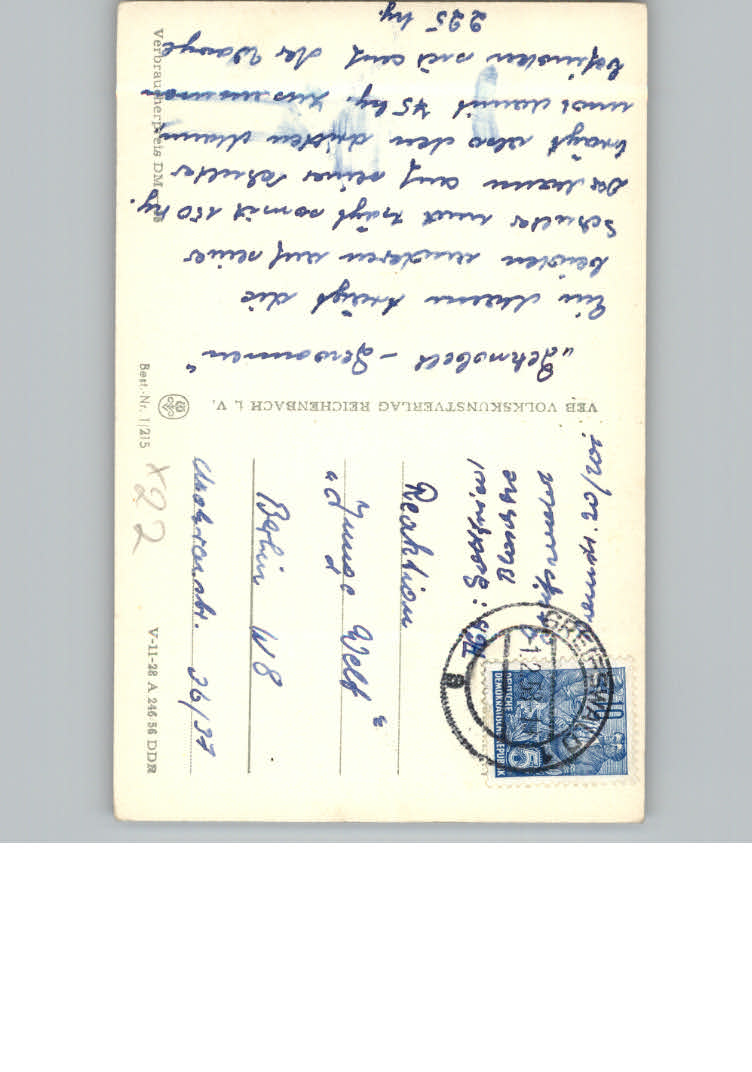 „Geknobelt – Gewonnen“
Ein Mann trägt die
beiden anderen auf seiner
Schulter und trägt somit 150 kg.
Der Mann auf seiner Schulter
trägt also den dritten Mann
und damit 75 kg. Zusammen
befinden sich auf der Waage
225 kg.
VEB VOLKSKUNSTVERLAG REICHENBACH i. V.
Verbraucherpreis DM
Best.-Nr. 1/215
V-11-28 A 246 56 DDR
x22
Redaktion
„Junge Welt“
Berlin W8
Mohrenstr. 36/37
GREIFSWALD 1
DEUTSCHE
DEMOKRATISCHE REPUBLIK
5